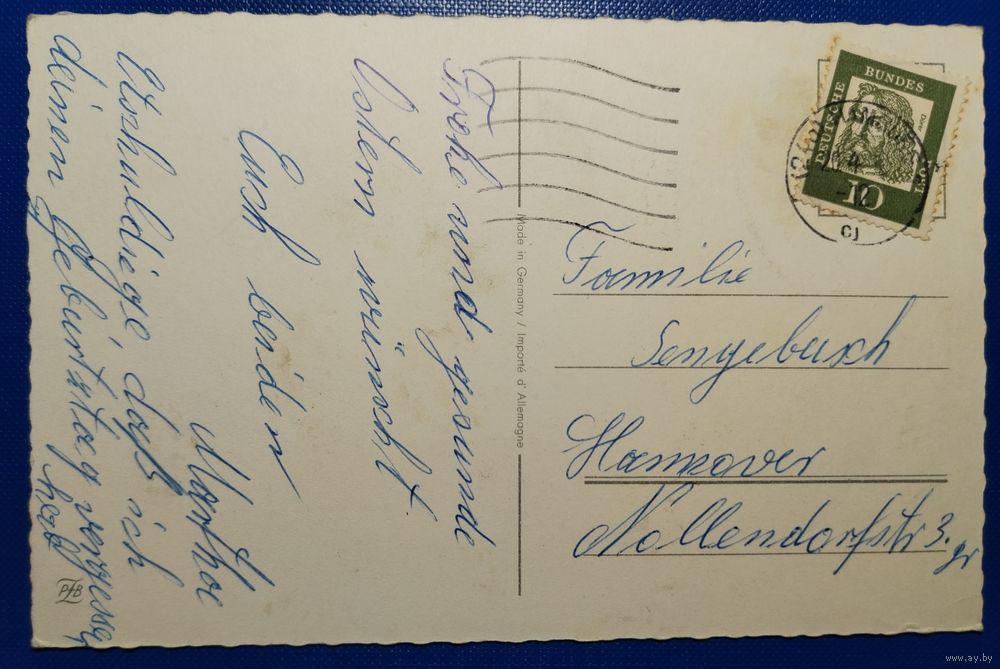 Frohe und gesunde
Ostern wünscht
Euch beiden
Marthe
Entschuldige daß ich
deinen Geburtstag vergessen
hab
Made in Germany / Importé d'Allemagne
PZB
DEUTSCHE BUNDESPOST
10
20.4.
-12
cj
Familie
Sengebusch
Hannover
Nollendorfstr 3.
www.ay.by